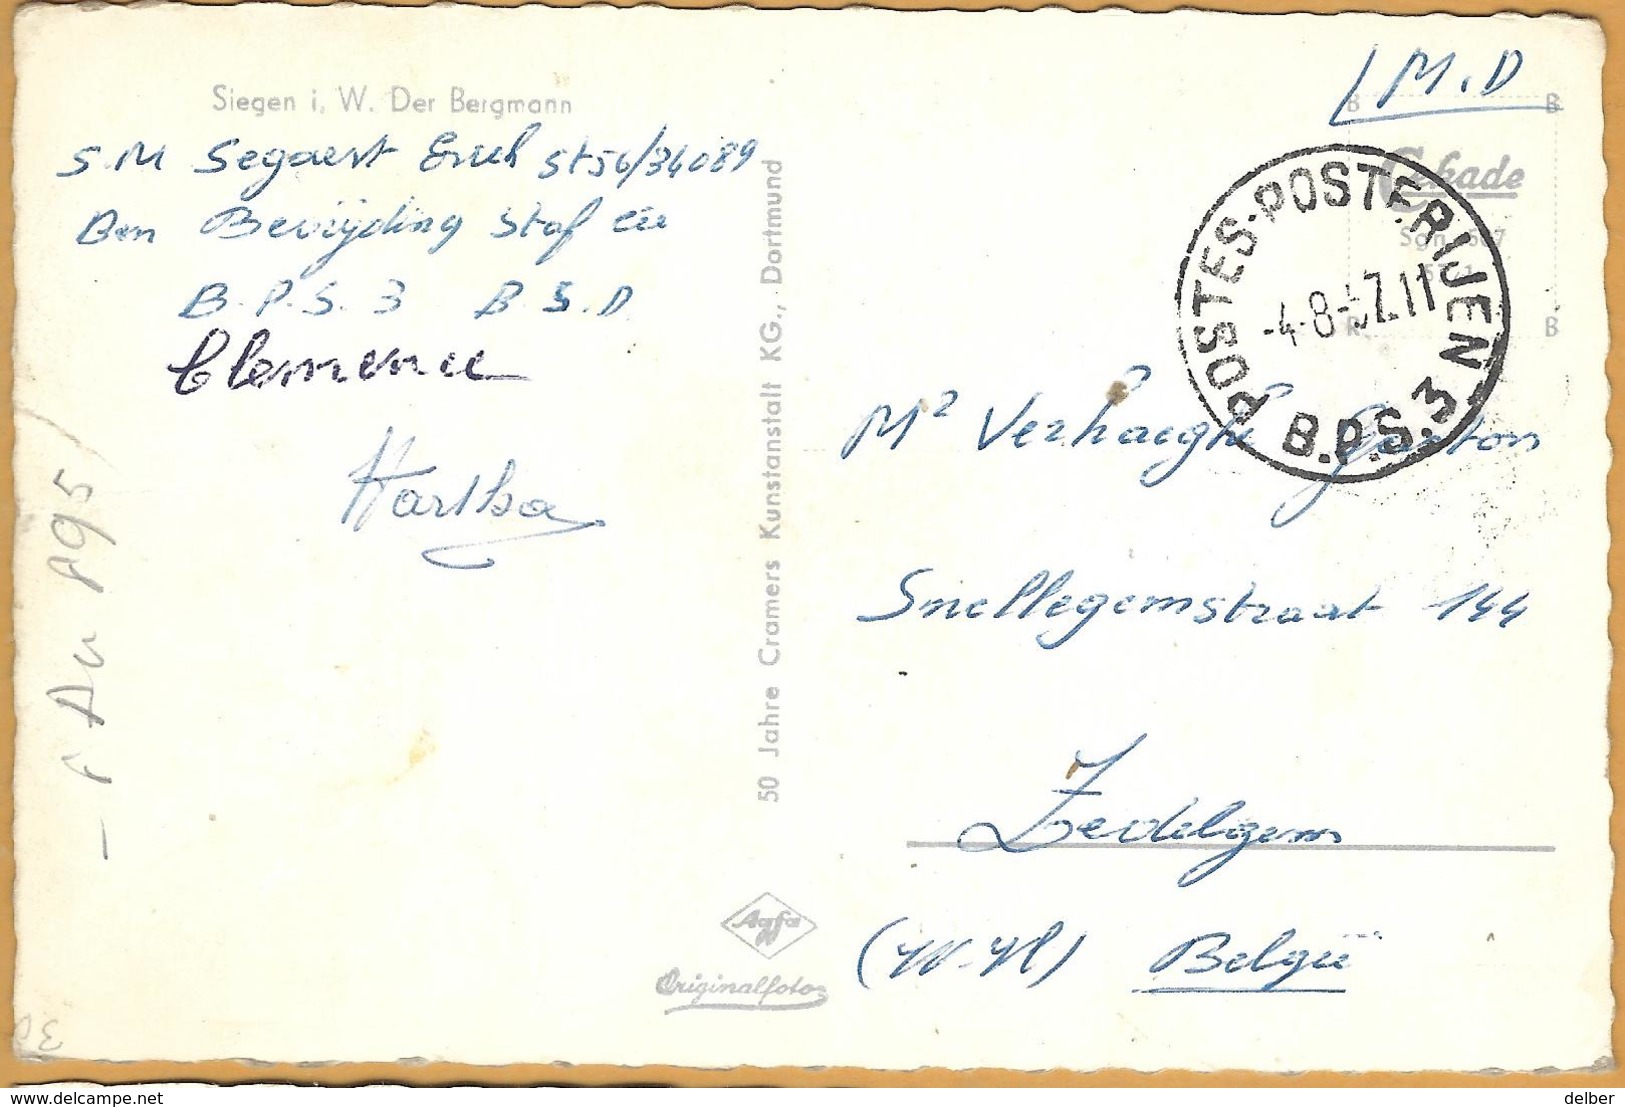 Siegen i. W. Der Bergmann
S.M Segaert Erich St56/34089
Ben Bevrijding Staf Cie
B.P.S. 3 B.S.D
Clemence
Hartha
50 Jahre Cramers Kunstanstalt KG., Dortmund
Agfa
Originalfoto
M.D
Cekade
POSTES-POSTERIJEN
-4-8-57.11
B.P.S.3
Mr Verhaeghe Gaston
Snellegemstraat 144
Zedelgem
(W-Vl) België
delcampe.net
delber